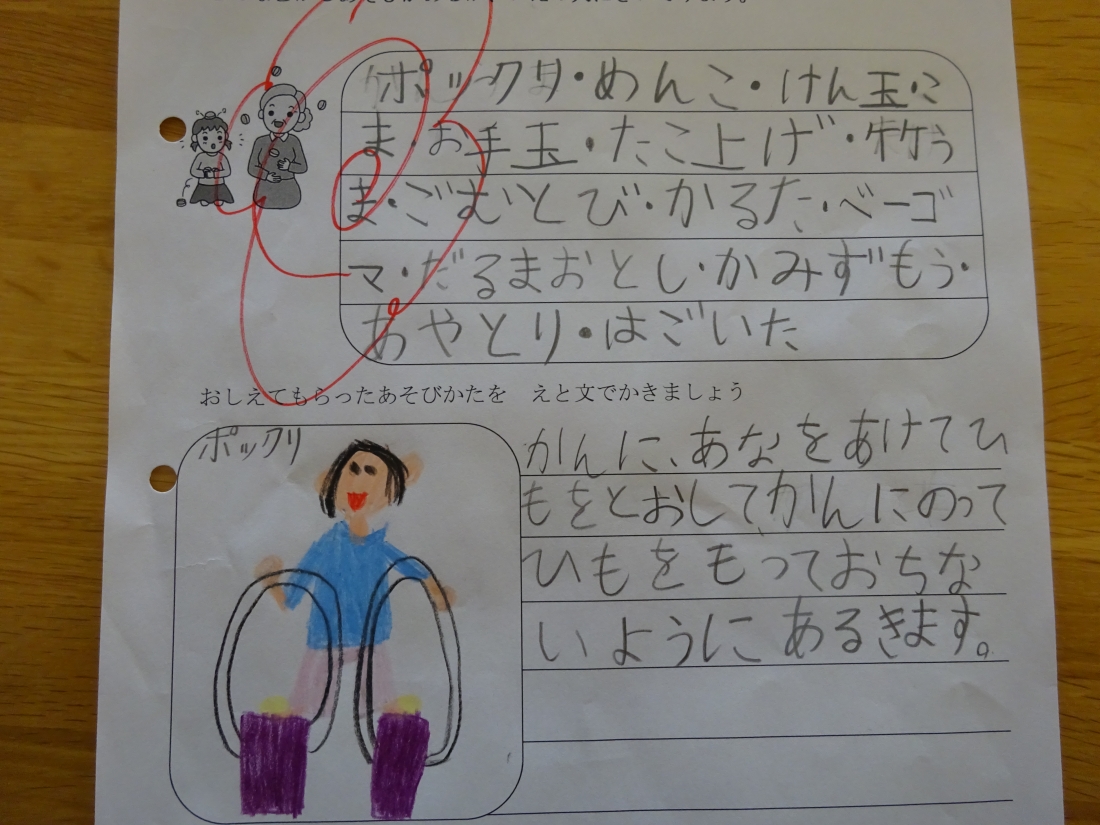 ポックリ・めんこ・けん玉・こ
ま・お手玉・たこ上げ・竹う
ま・ごむとび・かるた・ベーゴ
マ・だるまおとし・かみずもう・
あやとり・はごいた
おしえてもらったあそびかたを　えと文でかきましょう
ポックリ
かんに、あなをあけてひ
もをとおしてかんにのって
ひもをもっておちな
いようにあるきます。